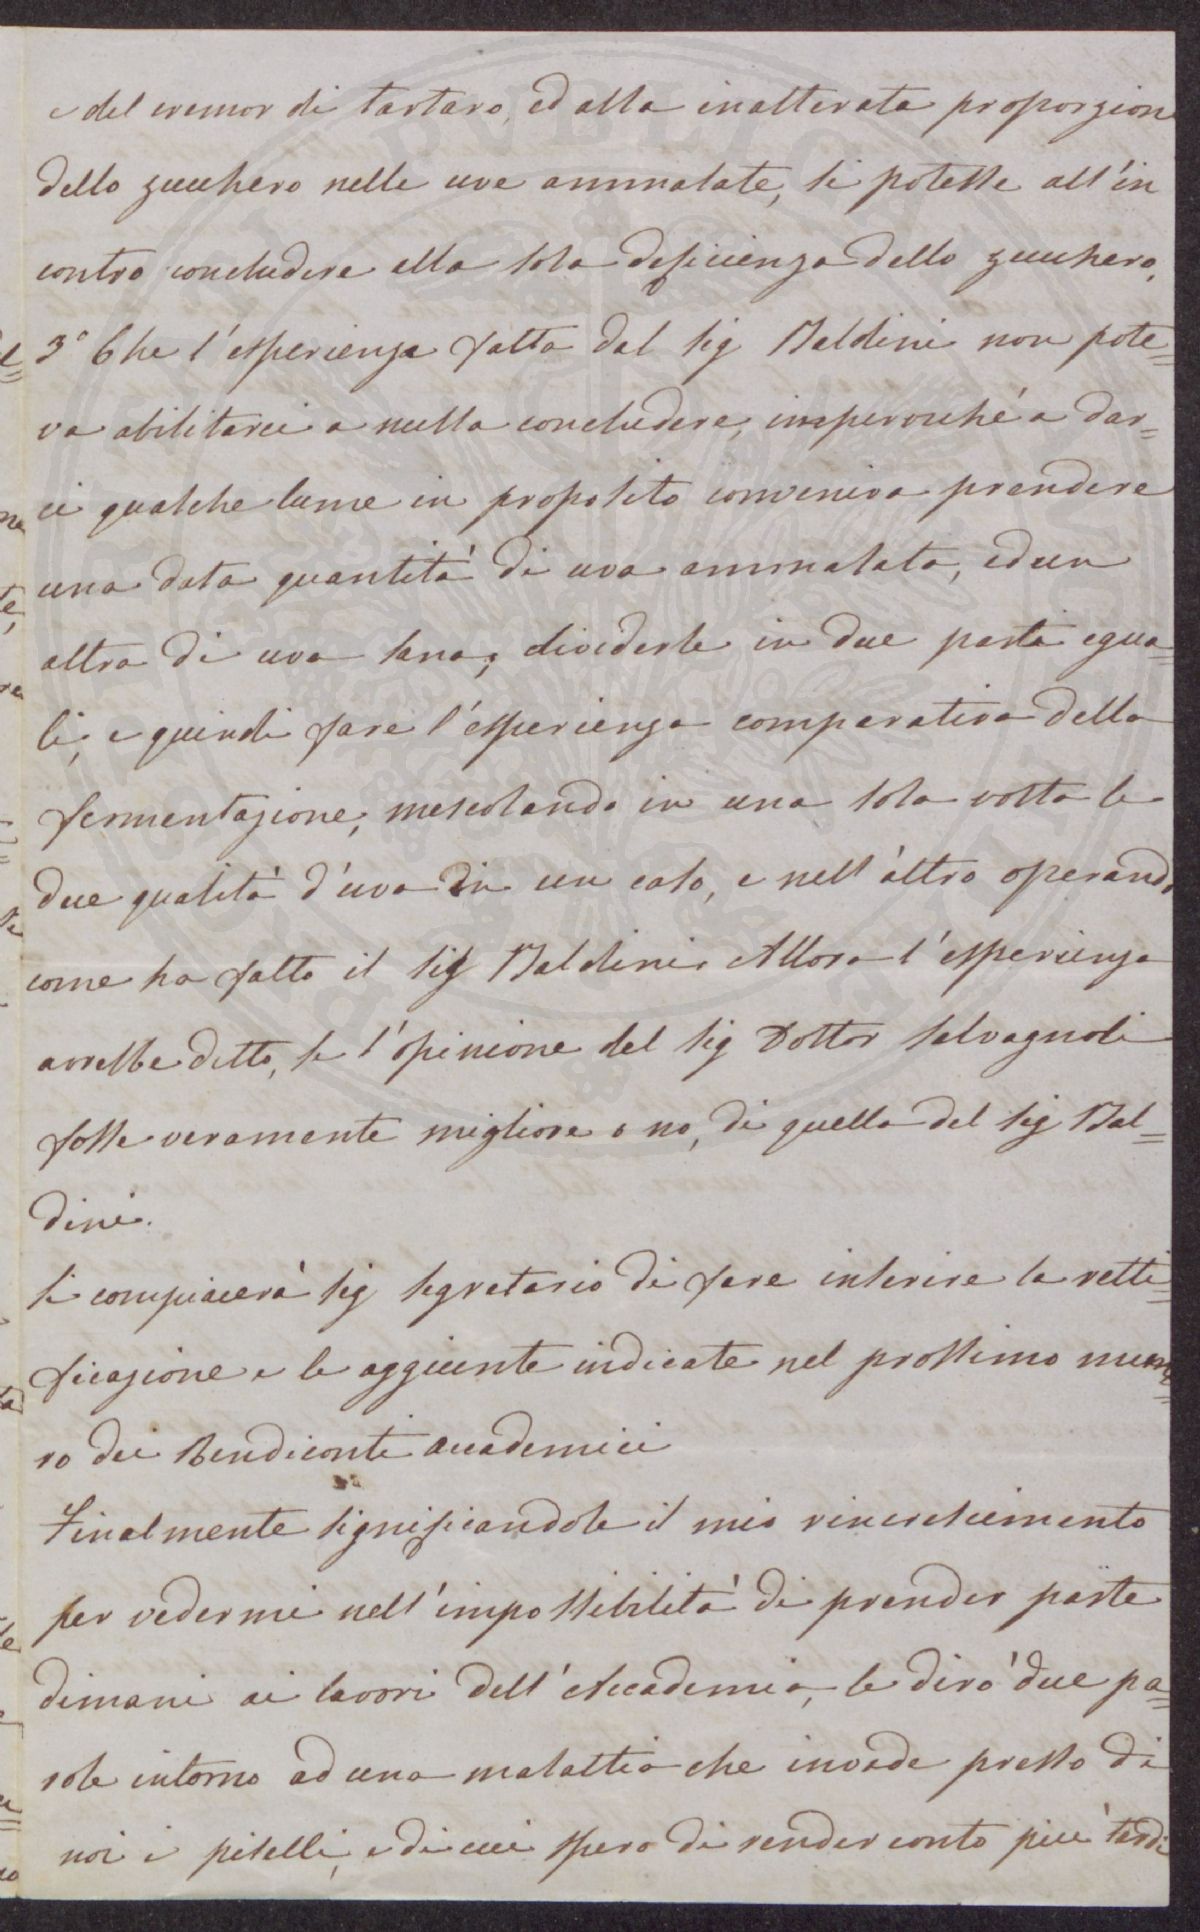 e del cremor di tartaro, ed alla inalterata proporzion
dello zucchero nelle uve ammalate, si potesse all'in
contro concludere alla sola deficienza dello zucchero.
3° Che l'esperienza fatta dal Sig Baldini non pote=
va abilitarci a nulla concludere, imperocché a dar=
ci qualche lume in proposito conveniva prendere
una data quantità di uva ammalata, ed un
altra di uva sana; dividerle in due parti egua=
li, e quindi fare l'esperienza comparativa della
fermentazione, mescolando in una sola volta le
due qualità d'uva in un caso, e nell'altro operando
come ha fatto il Sig Baldini. Allora l'esperienza
avrebbe detto, se l'opinione del Sig Dottor Salvagnoli
fosse veramente migliore o no, di quella del Sig Bal=
dini.
Si compiacerà Sig Segretario di fare inserire la retti=
ficazione e le aggiunte indicate nel prossimo nume=
ro dei Rendiconti accademici
Finalmente significandole il mio rincrescimento
per vedermi nell'impossibilità di prender parte
dimani ai lavori dell'Accademia, le dirò due pa=
role intorno ad una malattia che invade presso di
noi i piselli, e di cui spero di render conto più tardi